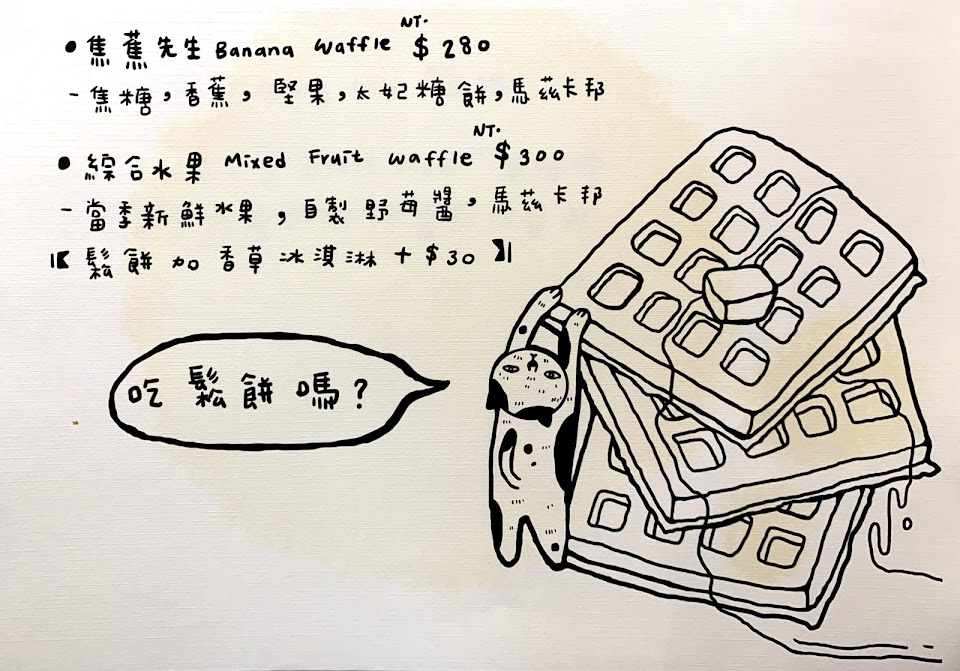 NT.
• 焦蕉先生 Banana waffle $280
- 焦糖,香蕉,堅果,太妃糖餅,馬茲卡邦
NT.
• 綜合水果 Mixed Fruit waffle $300
- 當季新鮮水果,自製野莓醬,馬茲卡邦
【鬆餅加香草冰淇淋+$30】
吃鬆餅嗎?